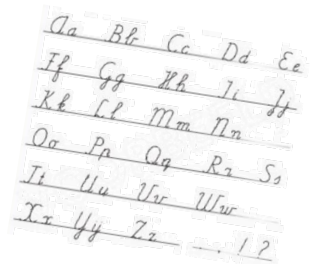 Aa Bb Cc Dd Ee
Ff Gg Hh Ii Jj
Kk Ll Mm Nn
Oo Pp Qq Rr Ss
Tt Uu Vv Ww
Xx Yy Zz - . ! ?